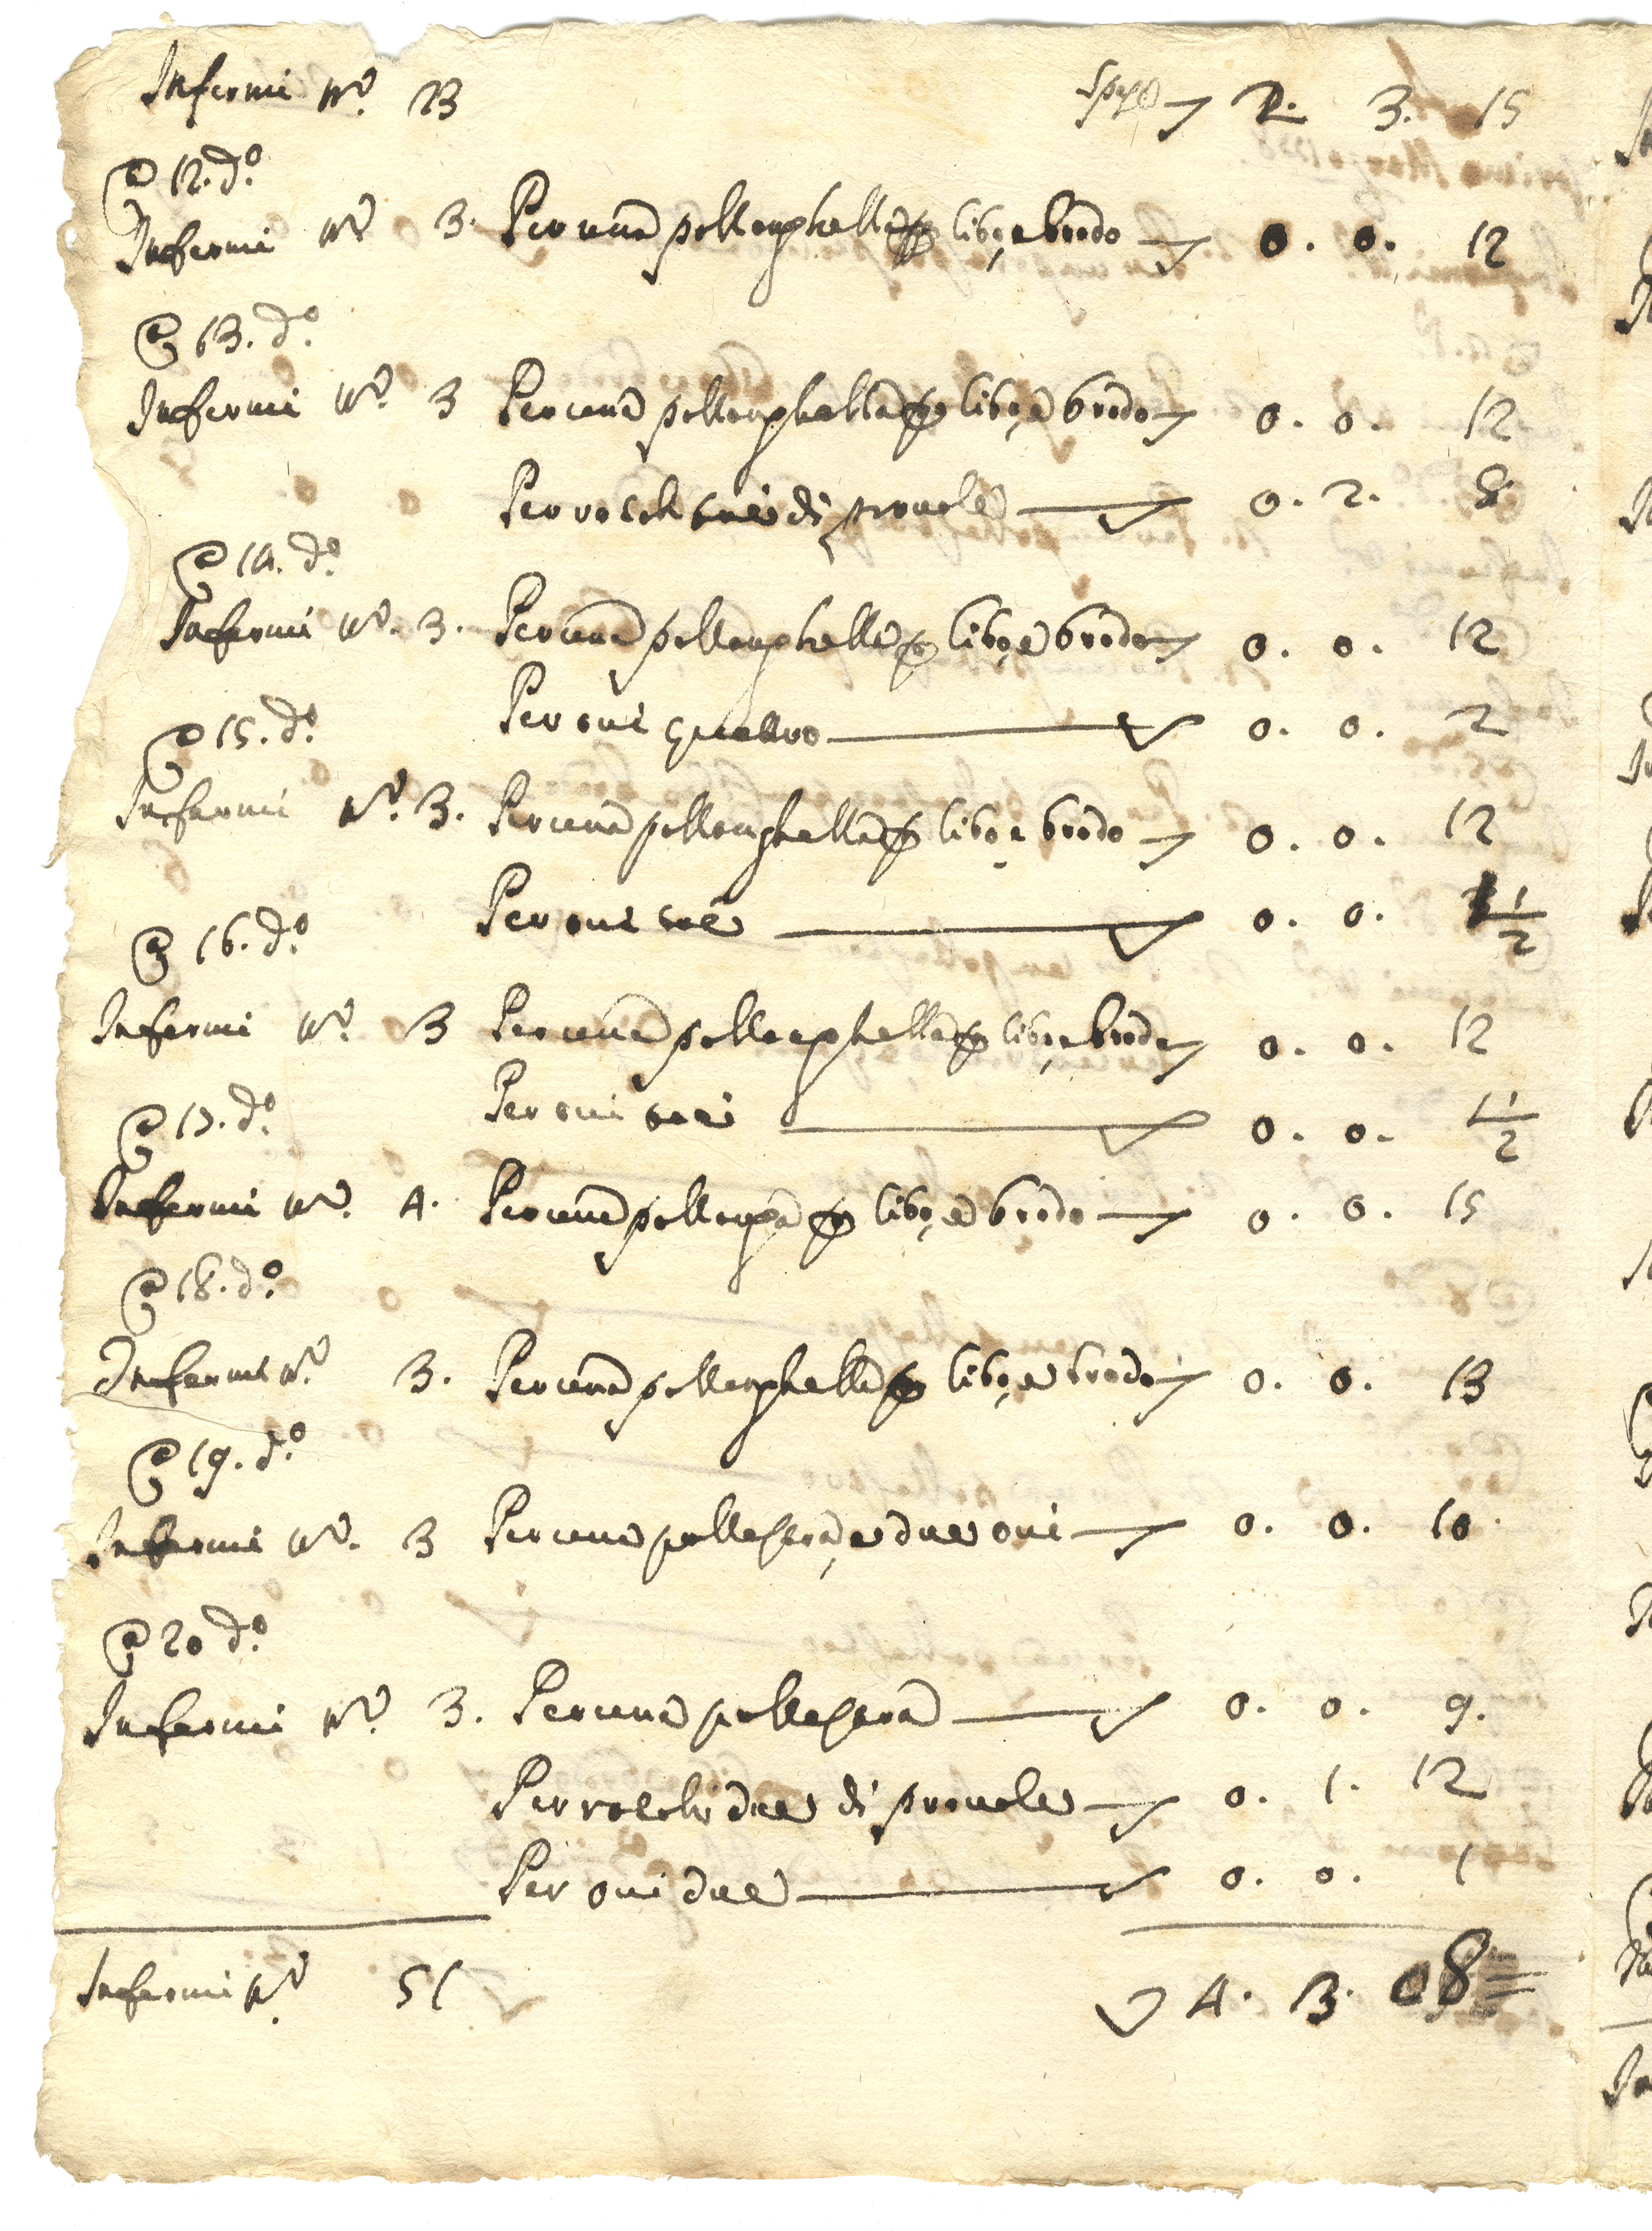 Infermi N.º 23 Spesa 2. 3. 15
A 12. d.º
Infermi N.º 3. Per una pollanghella p cibo, e brodo 0. 0. 12
A 13. d.º
Infermi N.º 3 Per una pollanghella p cibo, e brodo 0. 0. 12
Per rotoli trè di 0. 2. 8
A 14. d.º
Infermi N.º 3. Per una pollanghella p cibo, e brodo 0. 0. 12
Per ovi quattro 0. 0. 2
A 15. d.º
Infermi N.º 3. Per una pollanghella p cibo, e brodo 0. 0. 12
Per ovi trè 0. 0. 1 1/2
A 16. d.º
Infermi N.º 3 Per una pollanghella p cibo, e brodo 0. 0. 12
Per ovi trè 0. 0. 1 1/2
A 17. d.º
Infermi N.º 4. Per una pollanga p cibo, e brodo 0. 0. 15
A 18. d.º
Infermi N.º 3. Per una pollanghella p cibo, e brodo 0. 0. 13
A 19. d.º
Infermi N.º 3 Per una pollastra, e due ovi 0. 0. 10
A 20 d.º
Infermi N.º 3. Per una pollastra 0. 0. 9.
Per rotoli due di 0. 1. 12
Per ovi due 0. 0. 1
Infermi N.º 51 4. 3. 08